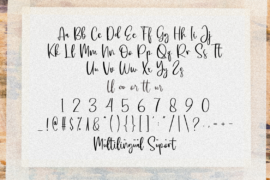 Aa Bb Cc Dd Ee Ff Gg Hh Ii Jj
Kk Ll Mm Nn Oo Pp Qq Rr Ss Tt
Uu Vv Ww Xx Yy Zz
ll oo rr tt ur
1 2 3 4 5 6 7 8 9 0
Multilingual Suport